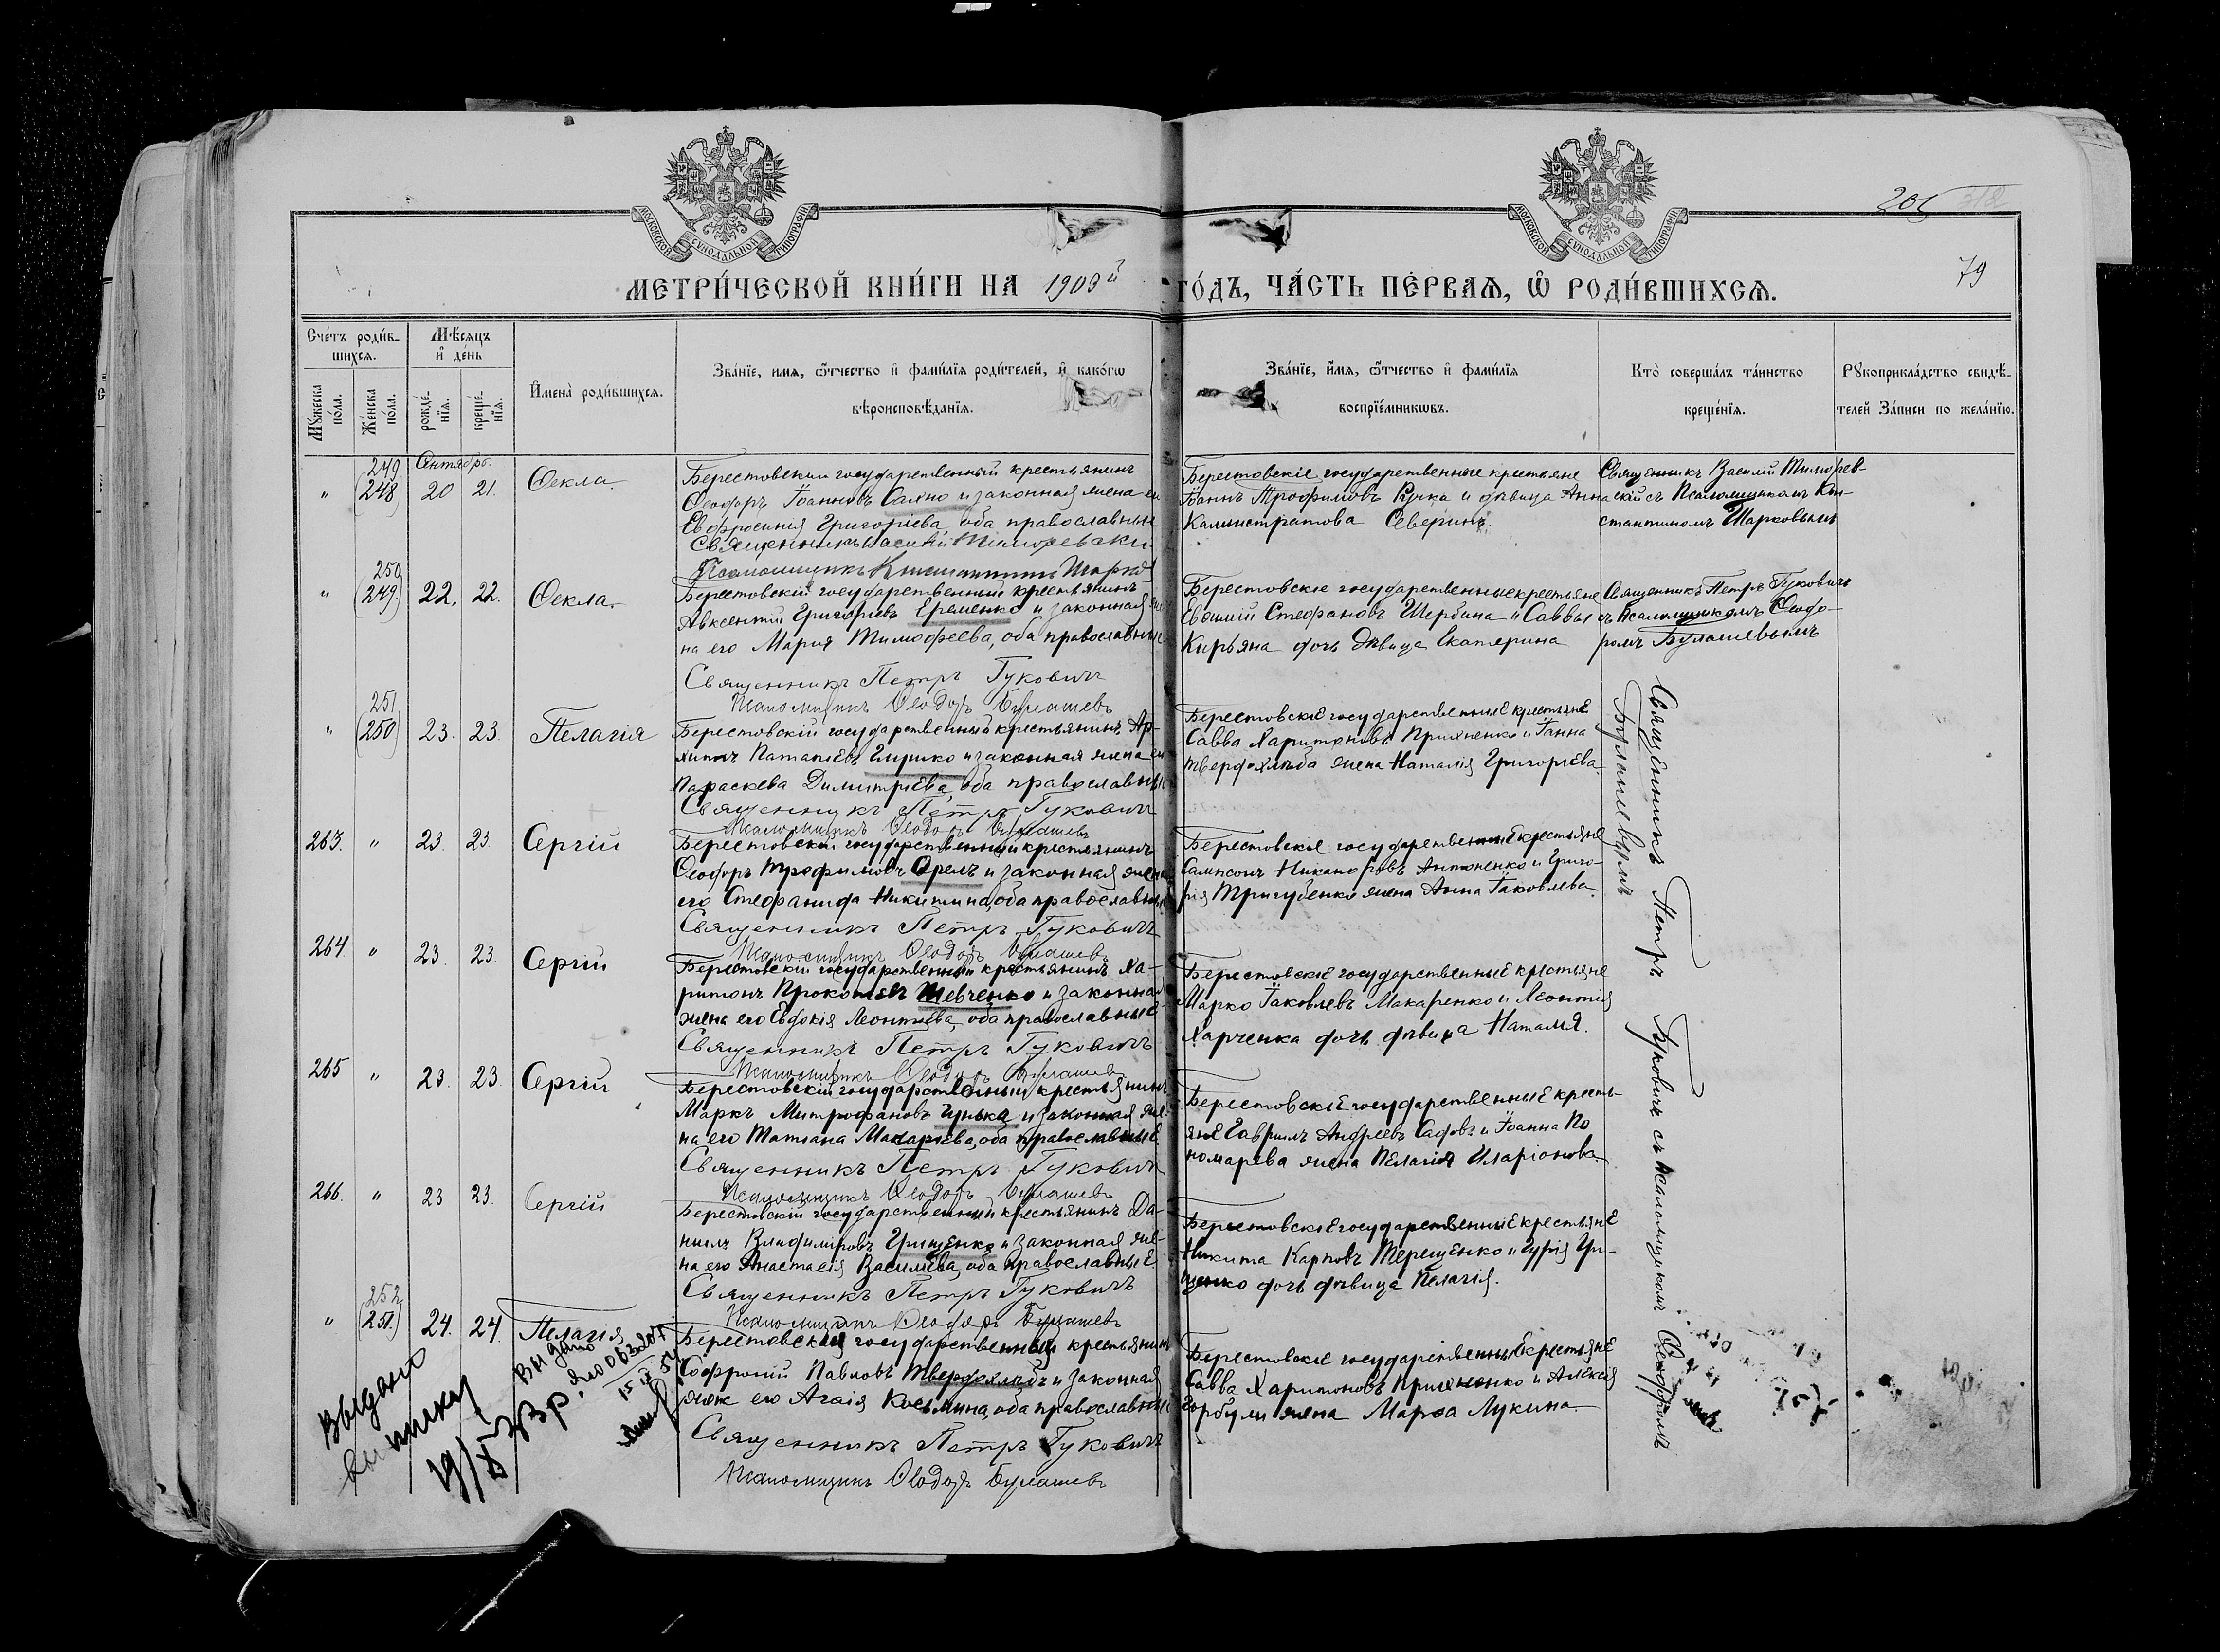 МОСКОВСКОЙ СѴНОДАЛЬНОЙ ТИПОГРАФІИ
МОСКОВСКОЙ СѴНОДАЛЬНОЙ ТИПОГРАФІИ
205
79
МЕТРИ́ЧЕСКОЙ КНИ́ГИ НА 1903й ГО́ДЪ, ЧА́СТЬ ПЕ́РВАѦ, Ѡ҆ РОДИ́ВШИХСѦ.
Сче́тъ роди́в-
шихся.
Мѣ́сяцъ
и҆ де́нь
Мꙋ́жеска по́ла.
Же́нска по́ла.
рожде́-
нїѧ.
креще́-
нїѧ.
И҆мена̀ роди́вшихся.
Зва́нїе, имѧ, ѻ҆́тчество и҆ фами́лїѧ роди́телей, и҆ како́гѡ
вѣроисповѣ́данїѧ.
Зва́нїе, и҆́мѧ, ѻ҆́тчество и҆ фами́лїѧ
воспрїе́мникѡвъ.
Кто̀ соверша́лъ та́инство
креще́нїѧ.
Рꙋкоприкла́дство свидѣ́-
телей За́писи по жела́нїю.
Сентябрь.
" 249 (248) 20 21. Ѳекла.
Берестовскій государственный крестьянинъ
Ѳеодоръ Іоанновъ Саяно и законная жена его
Евфросинія Григоріева, оба православные
Священникъ Василій Тиморевскій
Псаломщикъ Константинъ Шарков
Берестовскіе государственные крестьяне
Іоаннъ Трофимовъ Рцка и дѣвица Анна
Калистратова Северинъ.
Священникъ Василій Тиморев-
скій съ Псаломщикомъ Кон-
стантиномъ Шарковымъ
" 250 (249) 22. 22. Ѳекла.
Берестовскій государственный крестьянинъ
Авксентій Григоріевъ Еременко и законная же-
на его Марія Тимофеева, оба православные
Священникъ Петръ Гуковичъ
Псаломщикъ Ѳеодоръ Булашевъ
Берестовскіе государственные крестьяне
Евѳимій Стефановъ Щербина и Саввы
Кирьяна дочь дѣвица Екатерина
Священникъ Петръ Гуковичъ
съ Псаломщикомъ Ѳеодо-
ромъ Булашевымъ
" 251 (250) 23. 23. Пелагія
Берестовскій государственный крестьянинъ Ар-
хиппъ Потапіевъ Глушко и законная жена его
Параскева Димитріева, оба православные
Священникъ Петръ Гуковичъ
Псаломщикъ Ѳеодоръ Булашевъ
Берестовскіе государственные крестьяне
Савва Харитоновъ Прихненко и Іанна
Твердохлѣба жена Наталія Григоріева.
263. " 23. 23. Сергій
Берестовскій государственный крестьянинъ
Ѳеодоръ Трофимовъ Орелъ и законная жена
его Стефанида Никитина, оба православные
Священникъ Петръ Гуковичъ
Псаломщикъ Ѳеодоръ Булашевъ
Берестовскіе государственные крестьяне
Сампсонъ Никаноровъ Антоненко и Григо-
рія Тригубенко жена Анна Іаковлева.
264. " 23. 23. Сергій
Берестовскій государственный крестьянинъ Ха-
ритонъ Прокопіевъ Шевченко и законная
жена его Евдокія Леонтіева, оба православные
Священникъ Петръ Гуковичъ
Псаломщикъ Ѳеодоръ Булашевъ
Берестовскіе государственные крестьяне
Марко Іаковлевъ Макаренко и Леонтія
Харченка дочь дѣвица Наталія.
265 " 23. 23. Сергій
Берестовскій государственный крестьянинъ
Маркъ Митрофановъ Гунька и законная же-
на его Татіана Макаріева, оба православные
Священникъ Петръ Гуковичъ
Псаломщикъ Ѳеодоръ Булашевъ
Берестовскіе государственные кресть-
яне Гавріилъ Андреевъ Садовъ и Іоанна По
номарева жена Пелагія Иларіонова
266. " 23 23. Сергій
Берестовскій государственный крестьянинъ Да-
ніилъ Владиміровъ Грищенко и законная же-
на его Анастасія Василіева, оба православные
Священникъ Петръ Гуковичъ
Псаломщикъ Ѳеодоръ Булашевъ
Берестовскіе государственные крестьяне
Никита Карповъ Терещенко и Гурія Гри-
щенко дочь дѣвица Пелагія.
" 252 (251.) 24. 24. Пелагія
Берестовскій государственный крестьянинъ
Софроній Павловъ Твердохлѣбъ и законная
жена его Агаѳія Косьмина, оба православные
Священникъ Петръ Гуковичъ
Псаломщикъ Ѳеодоръ Булашевъ
Берестовскіе государственные крестьяне
Савва Харитоновъ Прихненко и Алексія
Горбули жена Марѳа Лукина.
Священникъ Петръ Гуковичъ съ Псаломщикомъ Ѳеодоромъ
Булашевымъ
Выдано
выписка
Выдано